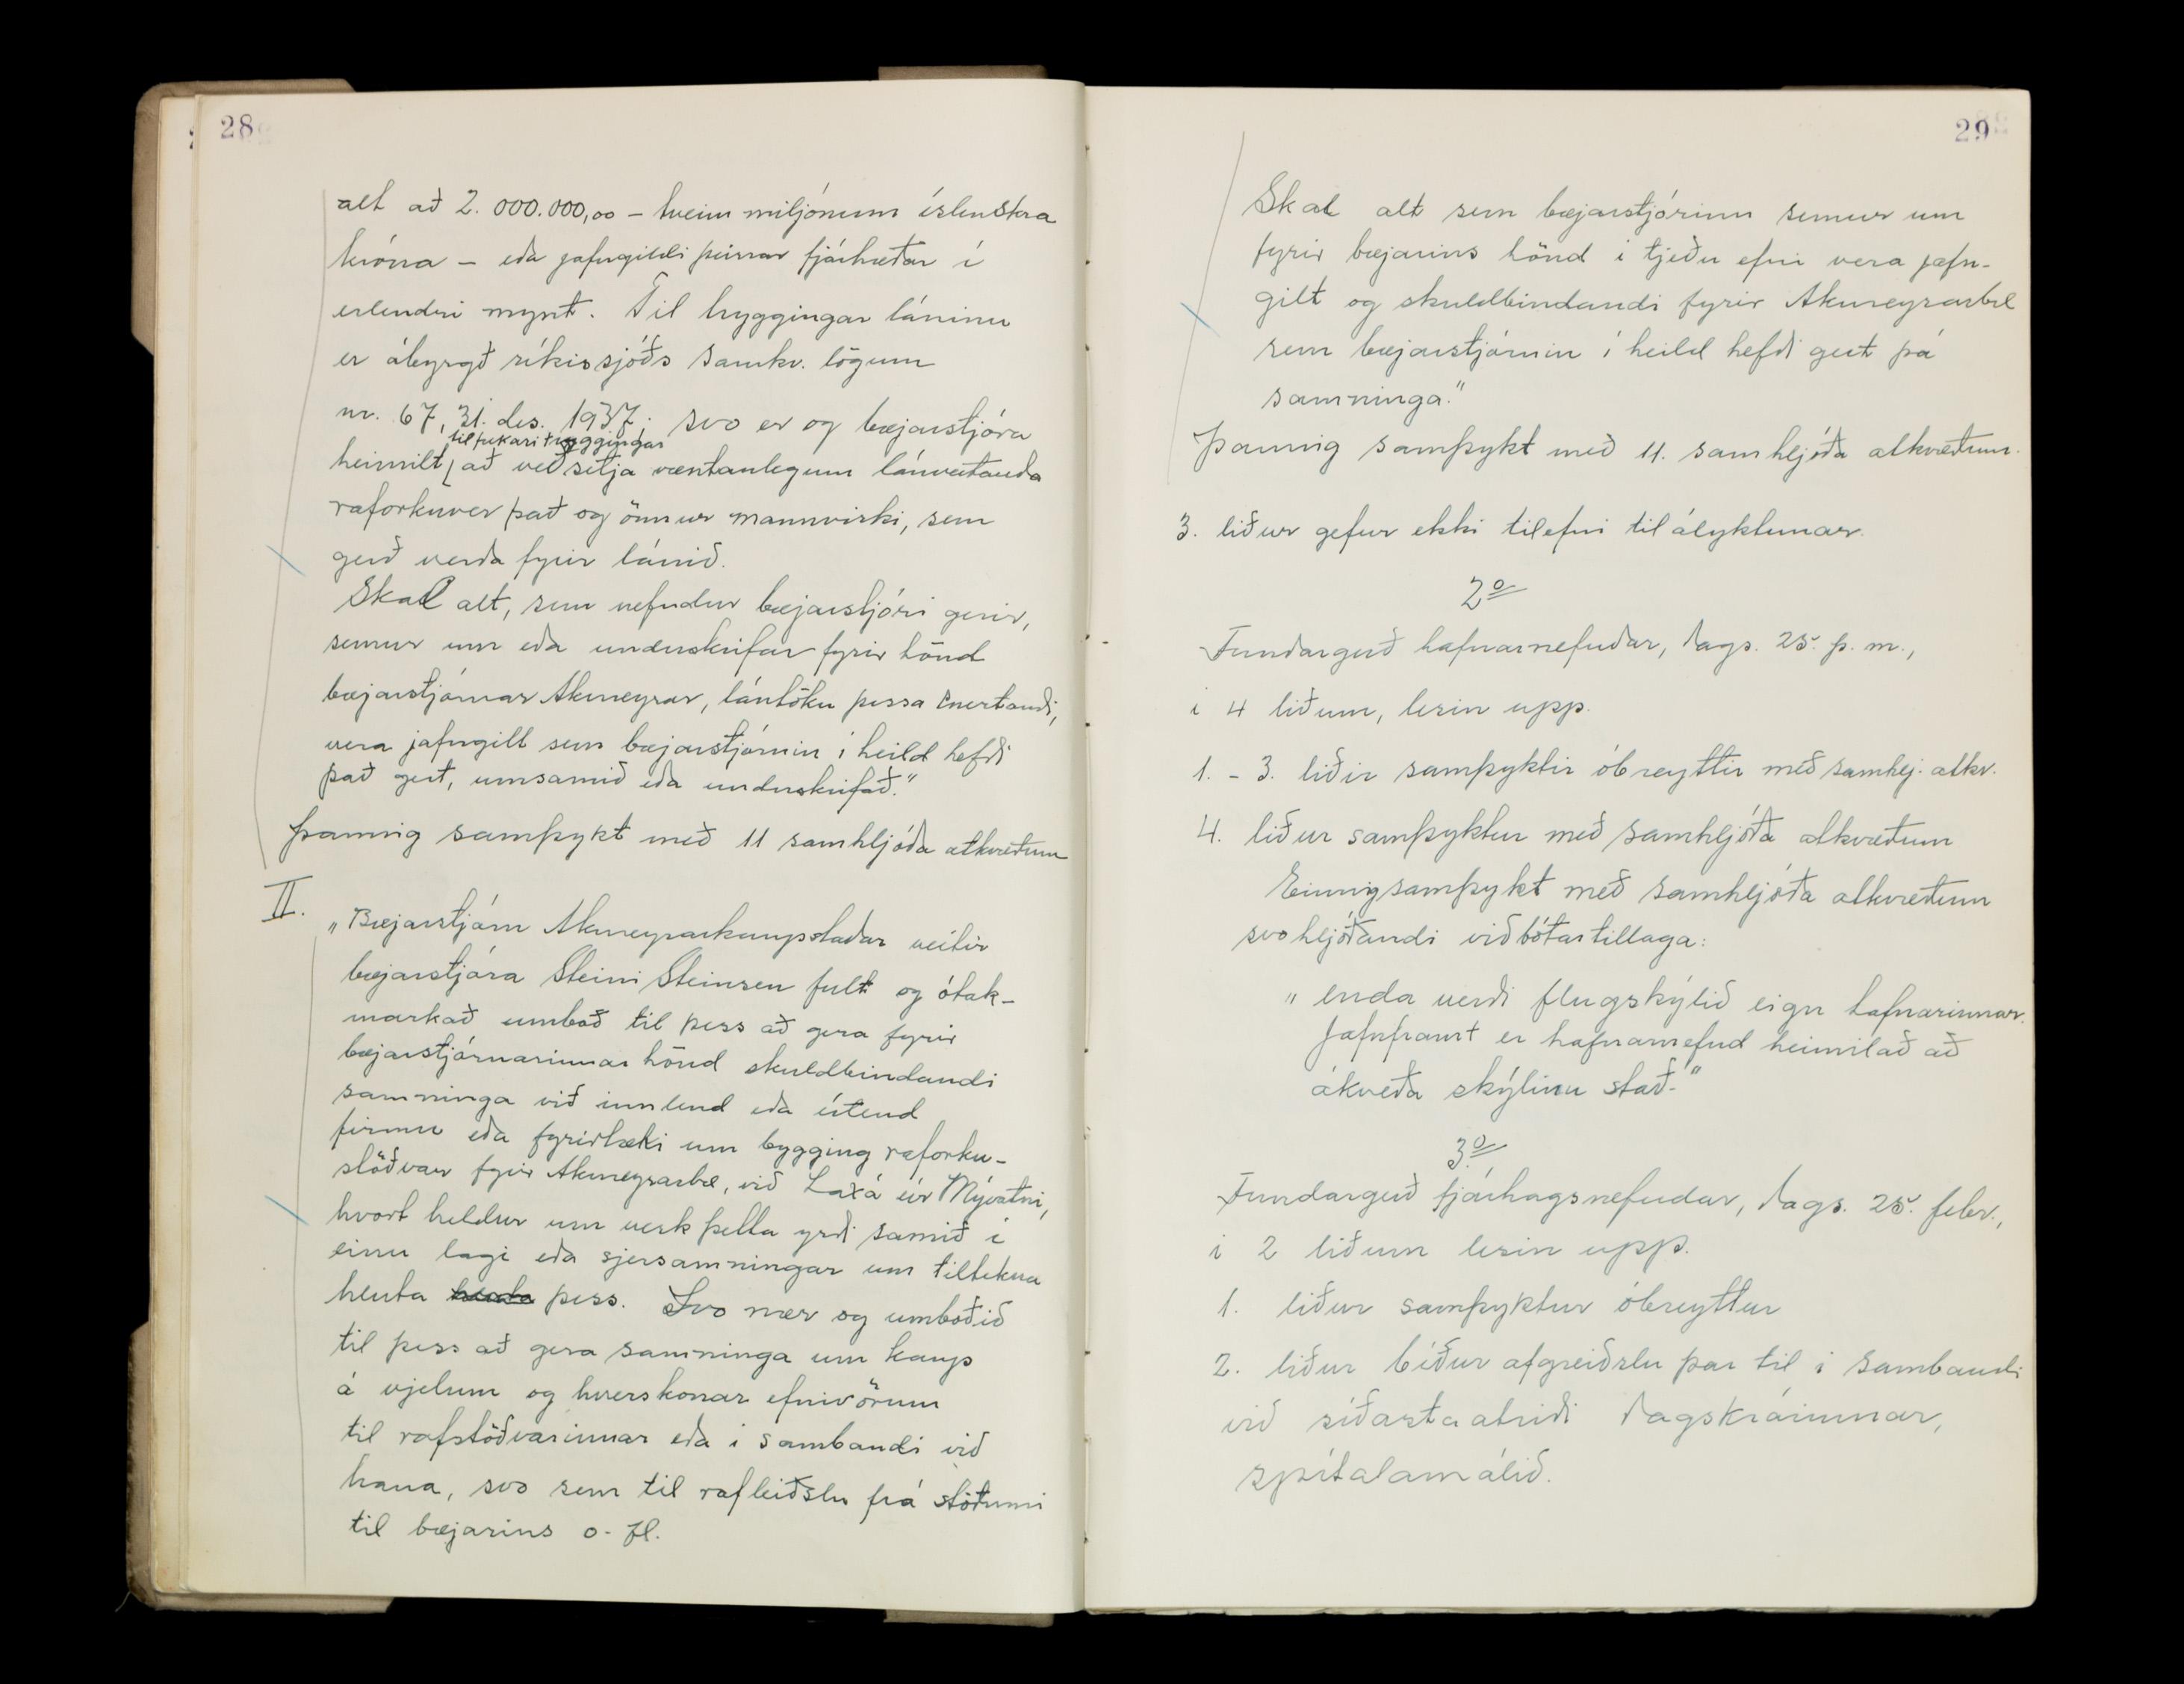 28
alt að 2.000.000,00 – tveim miljónum íslenskra
króna – eða jafngildi þeirrar fjárhæðar í
erlendri mynt. Til tryggingar láninu
er ábyrgð ríkissjóðs samkv. lögum
nr. 67, 31. des. 1937; svo er og bæjarstjóra
til frekari tryggingar
heimilt, að veðsetja væntanlegum lánveitanda
raforkuver það og önnur mannvirki, sem
gerð verða fyrir lánið.
Skal alt, sem nefndur bæjarstjóri gerir,
semur um eða undirskrifar fyrir hönd
bæjarstjórnar Akureyrar, lántöku þessa snertandi,
vera jafngilt sem bæjarstjórnin í heild hefði
það gert, umsamið eða undirskrifað."
Þannig samþykt með 11 samhljóða atkvæðum
II.
„Bæjarstjórn Akureyrarkaupstaðar veitir
bæjarstjóra Steini Steinsen fult og ótak-
markað umboð til þess að gera fyrir
bæjarstjórnarinnar hönd skuldbindandi
samninga við innlend eða útlend
firmu eða fyrirtæki um bygging raforku-
stöðvar fyrir Akureyrarbæ, við Laxá úr Mývatni,
hvort heldur um verk þetta yrði samið í
einu lagi eða sjersamningar um tiltekna
hluta þess. Svo nær og umboðið
til þess að gera samninga um kaup
á vjelum og hverskonar efnivörum
til rafstöðvarinnar eða í sambandi við
hana, svo sem til rafleiðslu frá stöðinni
til bæjarins o. fl.
29
Skal alt sem bæjarstjórinn semur um
fyrir bæjarins hönd í tjeðu efni vera jafn-
gilt og skuldbindandi fyrir Akureyrarbæ
sem bæjarstjórnin í heild hefði gert þá
samninga."
Þannig samþykt með 11. samhljóða atkvæðum.
3. liður gefur ekki tilefni til ályktunar.
2º
Fundargerð hafnarnefndar, dags. 25. þ. m.,
í 4 liðum, lesin upp.
1. – 3. liðir samþyktir óbreyttir með samhlj. atkv.
4. liður samþyktur með samhljóða atkvæðum
Einnig samþykt með samhljóða atkvæðum
svohljóðandi viðbótartillaga:
„enda verði flugskýlið eign hafnarinnar.
Jafnframt er hafnarnefnd heimilað að
ákveða skýlinu stað."
3º
Fundargerð fjárhagsnefndar, dags. 25. febr.,
í 2 liðum lesin upp.
1. liður samþyktur óbreyttur
2. liður bíður afgreiðslu þar til í sambandi
við síðasta atriði dagskrárinnar,
spítalamálið.